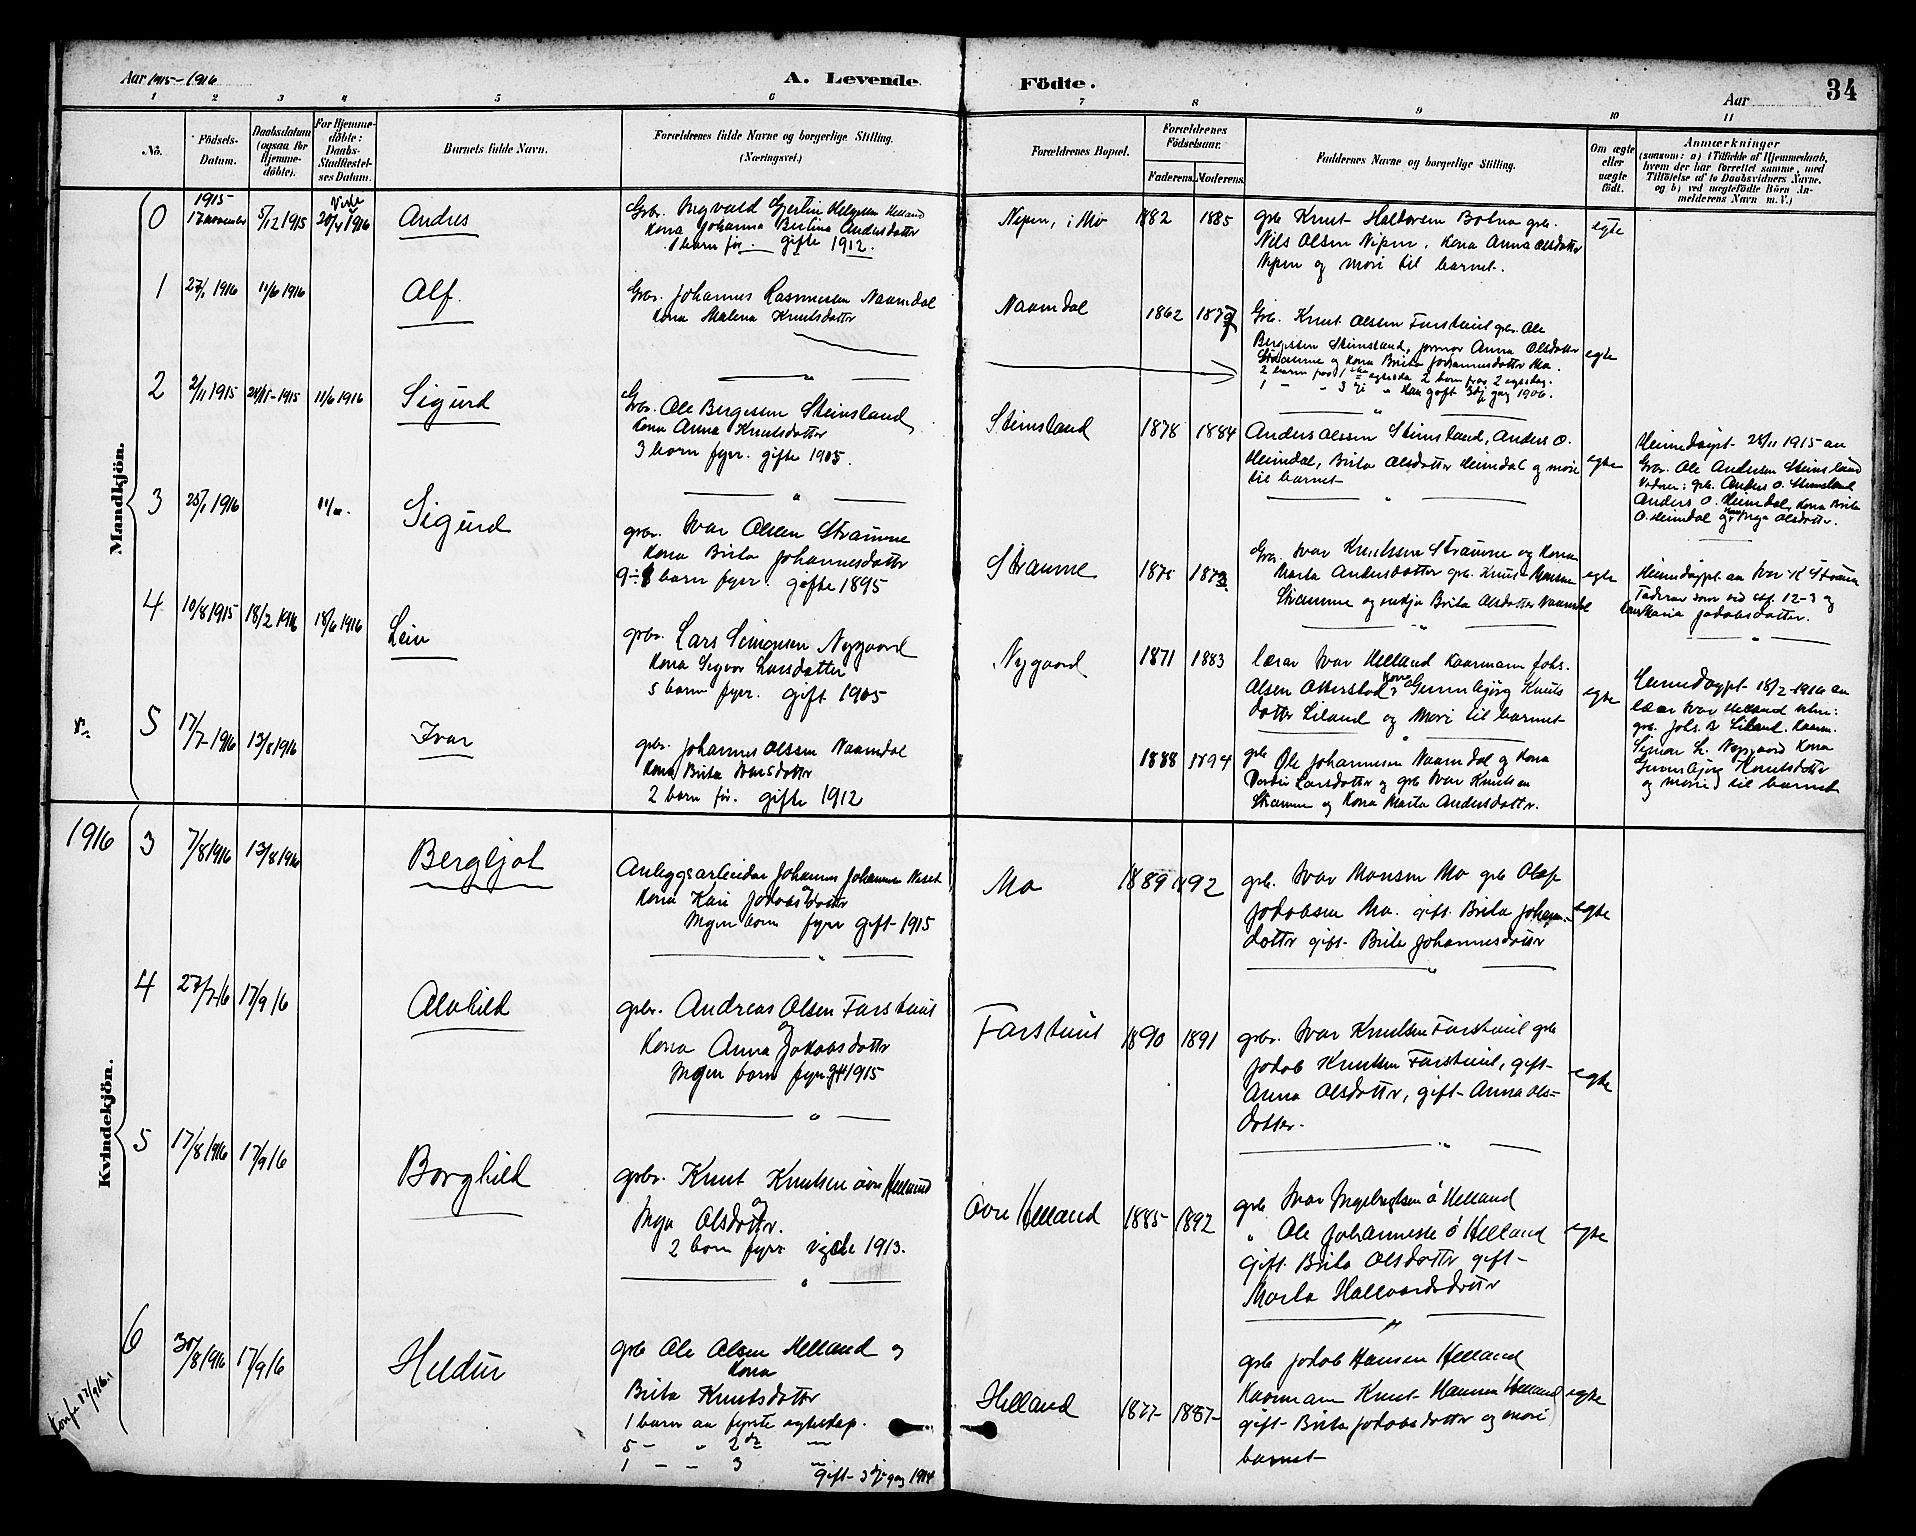 Aar 1915-1916
A. Levende
Födte.
Aar
34
1 2 3 4 5 6 7 8 9 10 11
No.
Födsels-
Datum.
Daabsdatum
(ogsaa for
Hjemme-
döbte).
For Hjemme-
döbte:
Daabs-
Stadfæstel-
ses Datum.
Barnets fulde Navn.
Forældrenes fulde Navne og borgerlige Stilling.
(Næringsvei.)
Forældrenes Bopæl.
Forældrenes
Födselsaar.
Faderens. Moderens.
Faddernes Navne og borgerlige Stilling.
Om ægte
eller
uægte
födt.
Anmærkninger
(saasom: a) i Tilfælde af Hjemmedaab,
hvem der har forrettet samme, med
Tilföielse af to Daabsvidners Navne,
og b) ved uægtefödte Börn An-
melderens Navn m. V.)
Mandkjön.
0
1915
17 november
5/12 1915
1916
Andres
Gbr. Ingvald Gjertin Helgesen Helland
Kona Johanna Bertina Andersdotter
1 barn för. gifte 1912.
Nipen, i Mo
1882 1885
grb. Knut Haldorsen Botna grb.
Nils Olsen Nipen, Kona Anna Olsdotter
Nipen og mori til barnet.
egte
1
27/1 1916
11/6 1916
Alf.
Gbr. Johannes Rasmussen Naamdal
Kona Malena Knutsdotter
Naamdal
1862
Grb. Knut Olsen Farstveit grb. Ole
Bergesen Steinsland, Anna Olsdotter
Straume og Kona Brita Johannesdotter Mo.
egte
2
2/11 1915
28/11-1915
11/6 1916
Sigurd
Gbr. Ole Bergesen Steinsland,
Kona Anna Knutsdotter
3 born fyrr. gifte 1905.
Steinsland
1878 1884
Anders Olssen Steinsland, Anders O.
Heimdal, Brita Olsdotter Heimdal og mori
til barnet
egte
Heimedøypt 28/11 1915 au
Gbr. Ole Andersen Steinsland
Vidner: grb. Anders O. Steinsland
Anders O. Heimdal, Kona Brita
O. Heimdal og Inga Olsdotter.
3
25/1 1916
Sigurd
grb. Ivar Olsen Straume
Kona Brita Johannesdotter
9 ÷ 8 born fyrr. gifte 1895
Straume
1875 1873
Gbr. Ivar Knutsen Straume og Kona
Marta Andersdotter grb. Knut Monsen
Straume og enkja Brita Olsdotter Naamdal
egte
Heimedøypt au Ivar K Straume
Fadrar som vid
Maria Jakobsdotter.
4
10/8 1915
18/2 1916
18/6 1916
Leiv
grb. Lars Simonsen Nygaard
Kona Sigvor Larsdotter
5 born fyrr. gift 1905
Nygaard
1871 1883
lærar Ivar Helland Kaarmann Johs.
Alsen Otterstad, Kona Gunnbjørg Knuts
dotter Liland og Mori til barnet
egte
Heimedøypt 18/2-1916 au
lærar Ivar Helland
grb. Johs. Liland. Kaarm.
Simon L. Nygaard Kona
Gunnbjørg Knutsdotter
og Mori til barnet
5
17/7-1916
13/8 1916
Ivar
grb. Johannes Olssen Naamdal
Kona Brita Ivarsdotter
2 born för. gifte 1912
1888 1894
grb Ole Johannesen Naamdal og Kona
Larsdotter og grb Ivar Knutsen
Straume og Kona Marta Andersdotter.
1916
Kvindekjön.
3
7/8 1916
13/8 1916
Bergljot
Anleggsarbeidar Johannes Johannes
og
Kona Kari Jakobsdotter
Ingen born fyrr gift 1915
Mo
1889 1892
grb. Ivar Monsen Mo grb Olaf
Jakobsen Mo. gift. Brita Johan-
dotter gift. Brita Johannesdotter
egte
4
27/7 16
17/9 16
Alvhild
grb. Andreas Olsen Farstveit
og
Kona Anna Jakobsdotter
Ingen born fyrr gift 1915
Farstveit
1890 1891
grb. Ivar Knutsen Farstveit grb
Jakob Knutsen Farstveit, gift
Anna Olsdotter, gift Anna Ols-
dotter.
egte
5
17/8 1916
17/9 16
Borghild
grb. Knut Knutsen övre Helland
og
Inga Olsdotter.
2 born fyrr vigde 1913.
Övre Helland
1885 1892
grb Ivar Ingebrigtsen ö Helland
" Ole Johannesse ö Helland
gift. Brita Olsdotter gift
Marta Hallvardsdotter
egte
6
30/8 1916
17/9 16
Heldur
grb Ole Olsen Helland og
Kona
Brita Knutsdotter
1 barn aa fyrste egteskap.
5 - " 2 dr "
1 - - 3 "
gift 3dje gang 1914
Helland
1877 1887
grb Jakob Hansen Helland
Kaarmann Knut Hannsen Helland
gift Brita Jakobsdotter og mori
barnet
egte